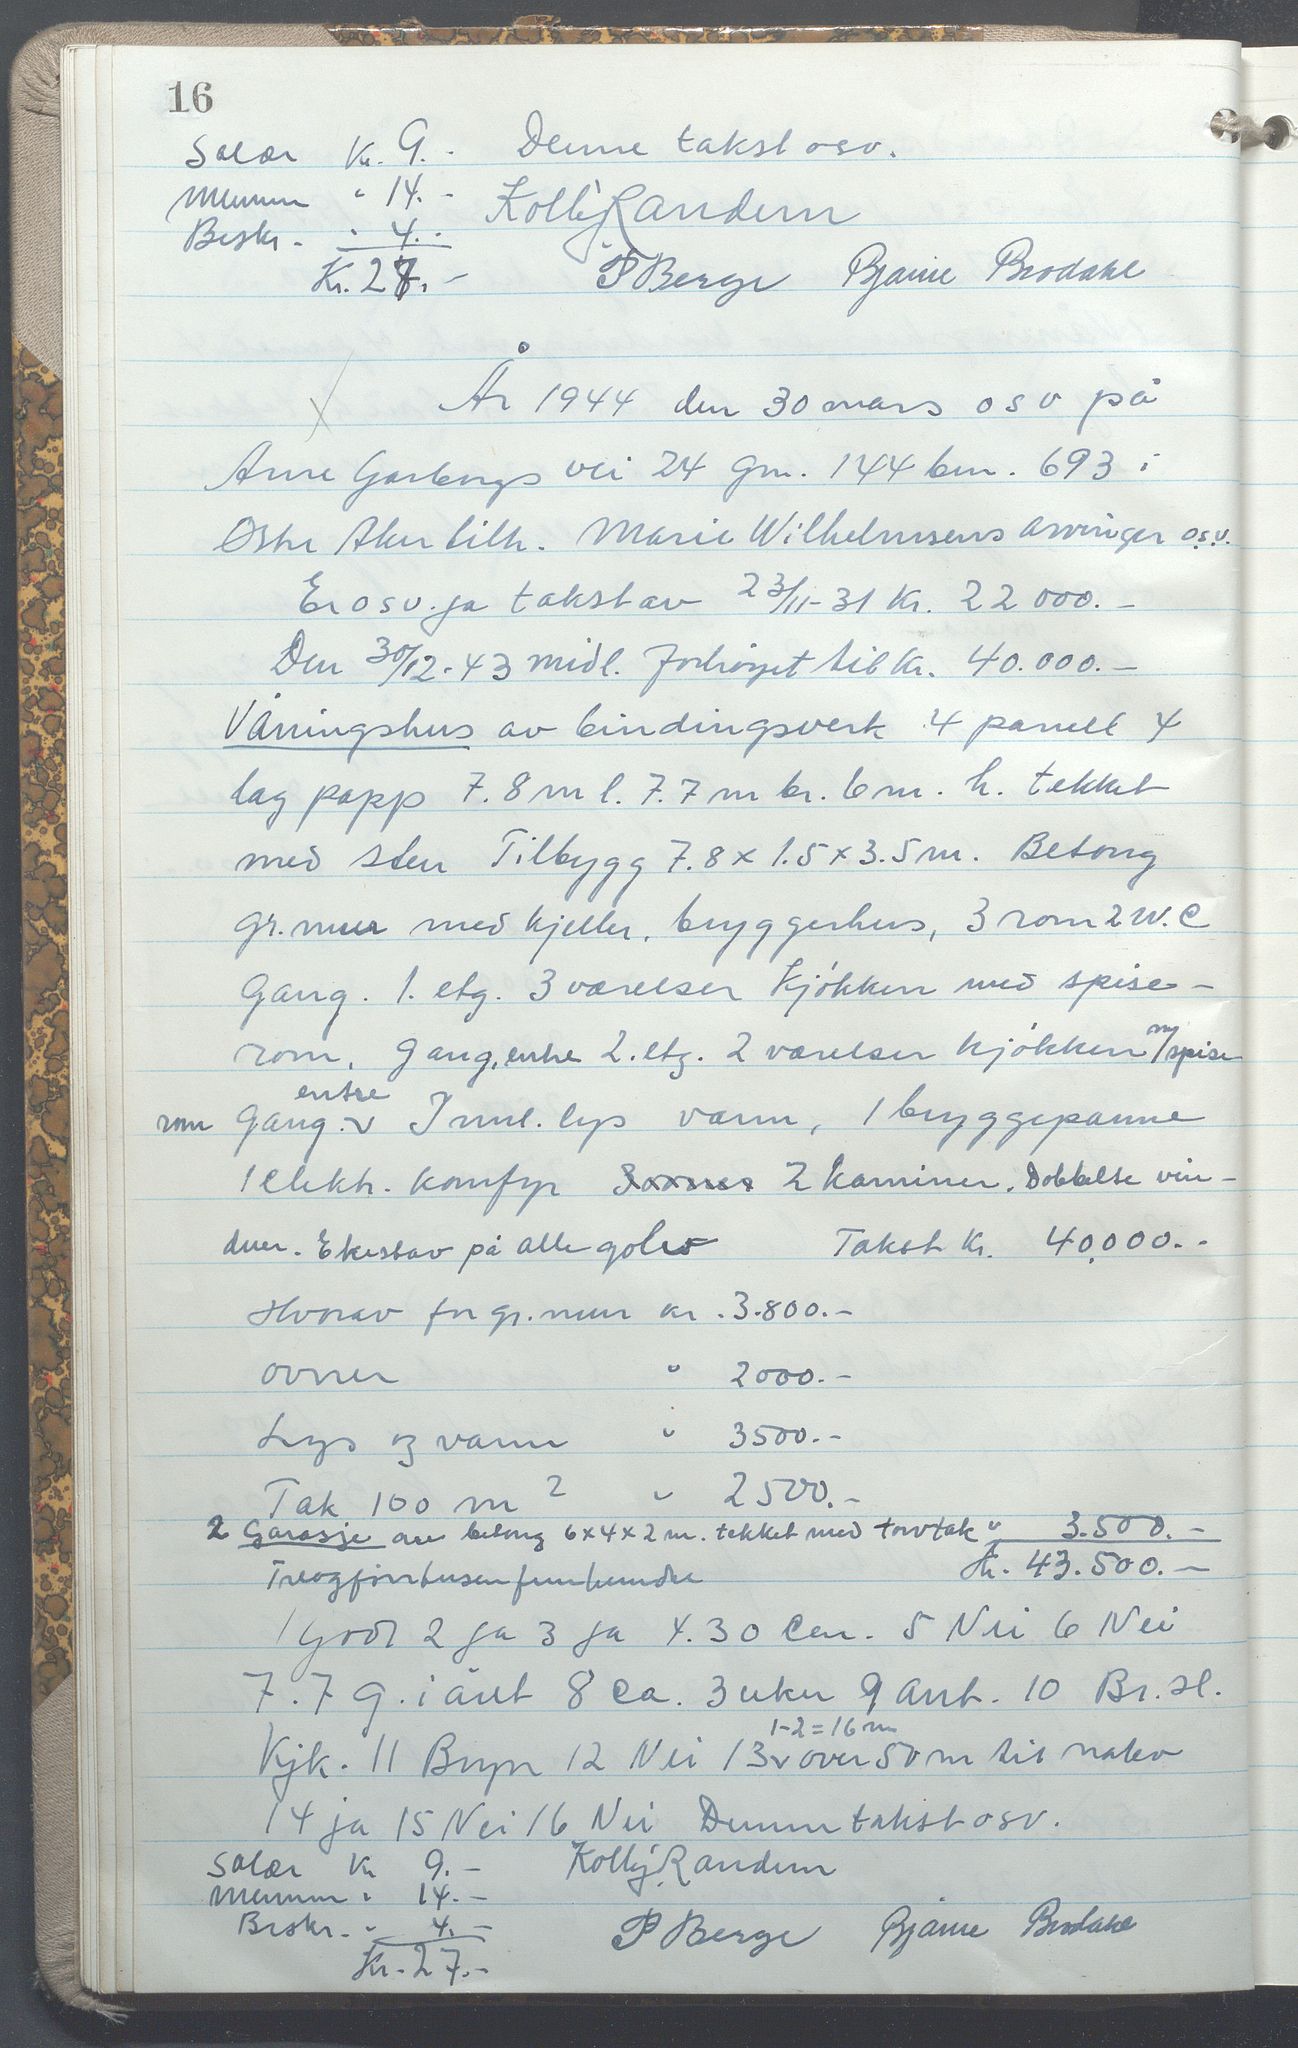 16
Salær Kr. 9.- Denne takst osv.
Mennene " 14.- Kolbj Randem
Beskr. - " 4.-
Kr. 27.- P Berge Bjarne Brodahl
År 1944 den 30 mars osv på
Arne Garborgs vei 24 gnr. 144 bnr. 693 i
Østre Aker tilh. Marie Wilhelmsens arvinger osv.
Er osv. ja takst av 23/11-31 kr. 22000.-
Den 30/12-43 midl. forhøyet til kr. 40.000.-
Våningshus av bindingsverk 4 panell 4
lag papp 7.8 m l. 7.7 m br. 6 m. h. tekket
med sten Tilbygg 7.8 x 1.5 x 3.5 m. Betong
gr.mur med kjeller, bryggerhus, 3 rom 2 W.C
Gang. 1. etg. 3 værelser kjøkken med spise-
rom, gang, entre 2. etg. 2 værelser kjøkken m/spise
rom Gang. entre Innl. lys vann, 1 bryggepanne
1 elektr. komfyr 2 kaminer. Dobbelte vin-
duer. Ekestav på alle golv Takst kr. 40.000.-
Hvorav for gr.mur kr. 3.800.-
ovner " 2000.-
Lys og vann " 3500.-
Tak 100 m2 " 2500.-
2 Garasje av betong 6x4x2 m. tekket med torvtak " 3.500.-
Treogførrtusenfemhundre kr. 43.500.-
1 god 2 ja 3 ja 4. 30 cm. 5 Nei 6 Nei
7. 7 g. i året 8 ca. 3 uker 9 ant. 10 Br. sl.
Kjk. 11 Bryn 12 Nei 13 1-2 = 16 m over 50 m til nabo
14 ja 15 Nei 16 Nei Denne takst osv.
Salær Kr 9.- Kolbj Randem
Mennene " 14.-
Beskr. - " 4.- P Berge Bjarne Brodahl
Kr. 27.-